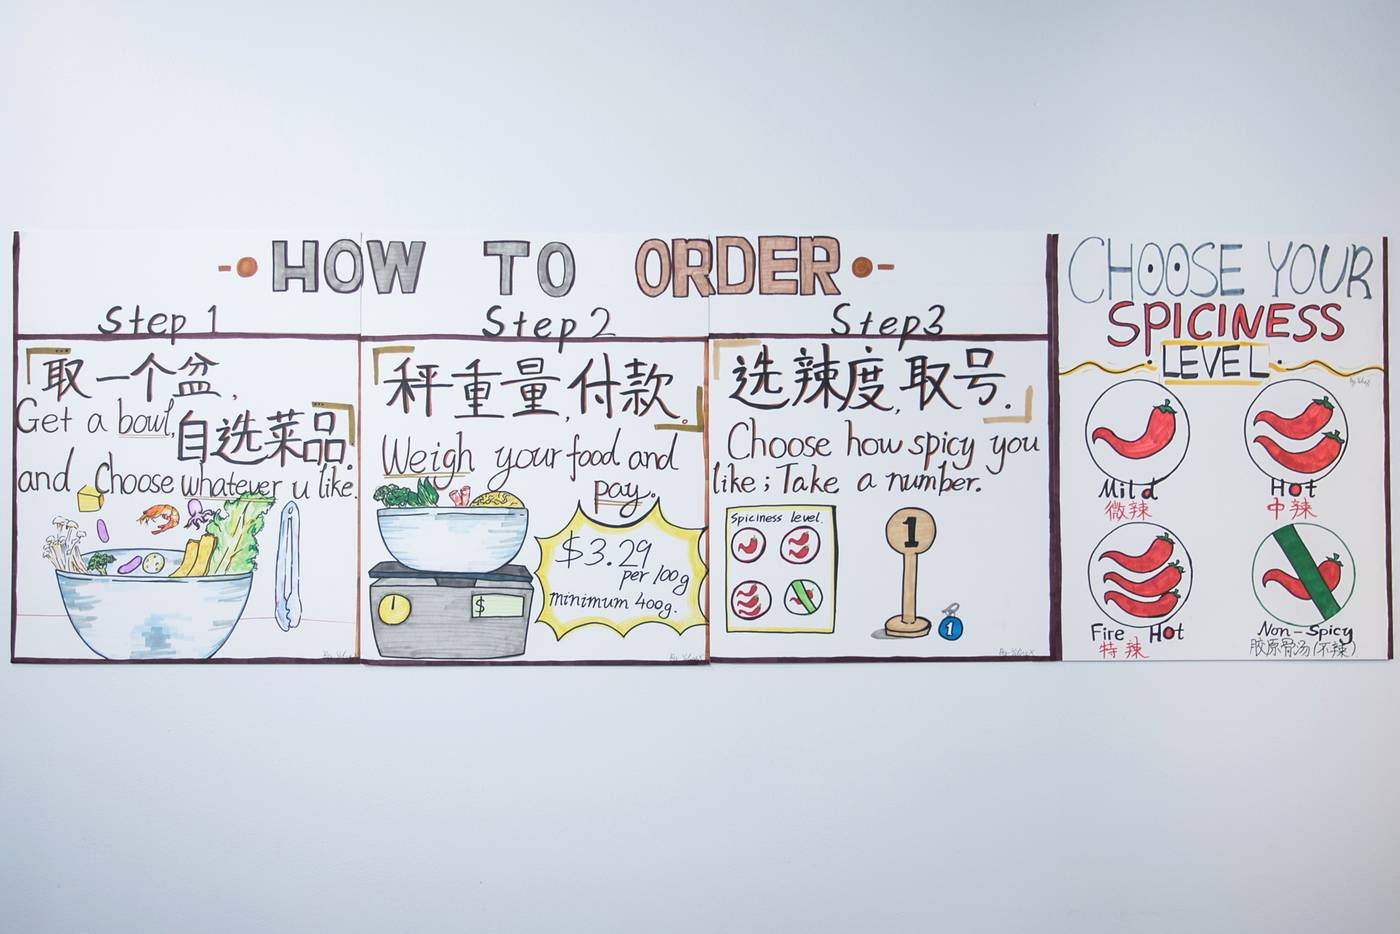 HOW TO ORDER
Step 1
取一个盆,
Get a bowl,
自选菜品.
and Choose whatever u like.
Step 2
秤重量,付款.
Weigh your food and
pay.
$3.29
per 100g
minimum 400g.
$
Step3
选辣度,取号.
Choose how spicy you
like; Take a number.
Spiciness level.
1
1
CHOOSE YOUR
SPICINESS
LEVEL
Mild
微辣
Hot
中辣
Fire Hot
特辣
Non-Spicy
胶原骨汤(不辣)